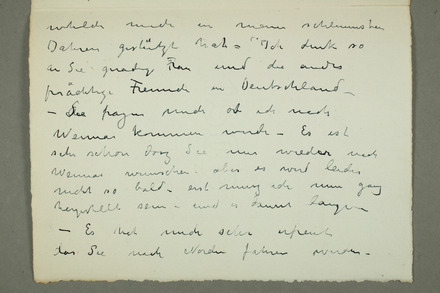 welche mich in meinen schlimmsten
Jahren gestützt hat = "Ich denk so
an Sie gnädige Frau und die andes
prächtige Freunde in Deutschland –
– Sie fragen mich ob ich nach
Weimar kommen würde – Es ist
sehr schön dass Sie uns wieder nach
Weimar wünschen – aber es wird leider
nicht so bald – erst muss ich nun ganz
hergestellt sein – und es dauert lange
– Es hat mich sehr erfreut
das Sie nach Norden fahren werden –